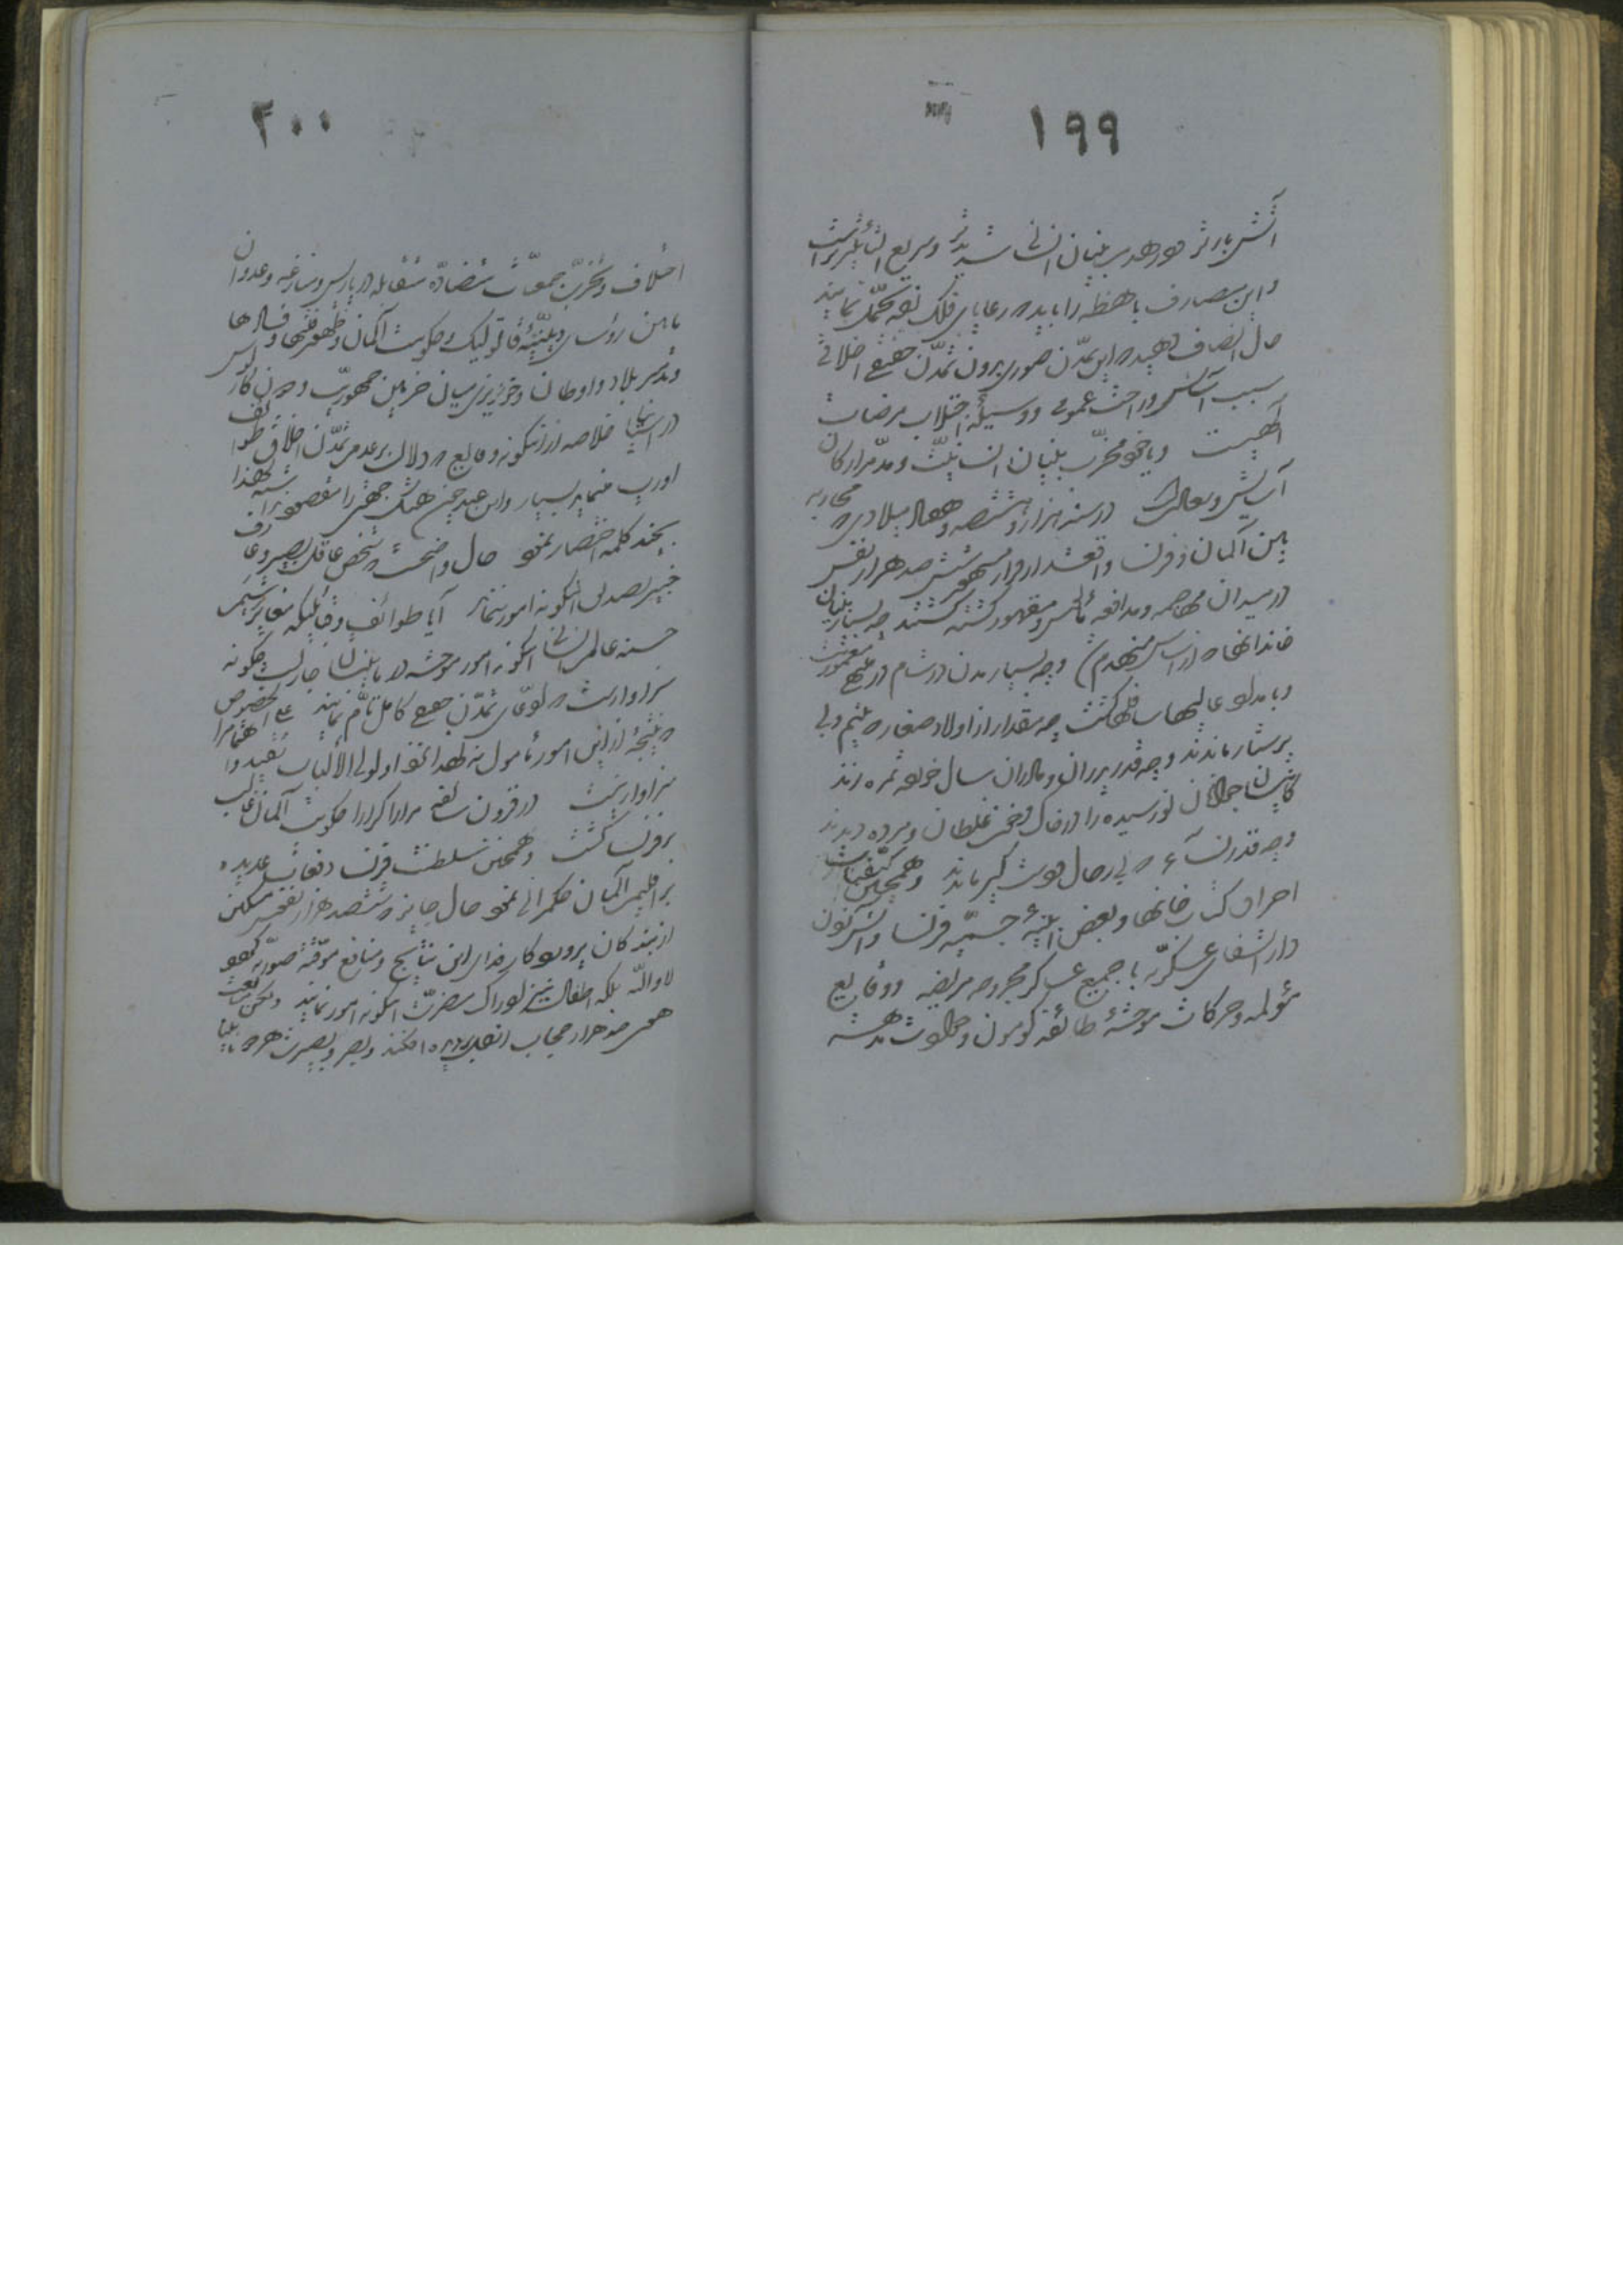 ١٩٩
آتش بارتر و در هدم بنیان انسانی شدیدتر و سریع التأثیرتر است
و این مصارف باهظه را باید که رعایای فلک زده تحمّل نمایند
حال انصاف دهید که این تمدّن صوری بدون تمدّن حقیقی اخلاقی
سبب آسایش و راحت عمومی و وسیلهٔ اجتلاب مرضات
الهیست و یا خود مخرّب بنیان انسانیّت و مدمّر ارکان
آسایش و سعادت در سنه هزار و هشتصد و هفتاد میلادی که محاربه
بین آلمان و فرانسا واقع شد از قرار مشهور ششصد هزار نفس
در میدان مهاجمه و مدافعه مأیوس و مقهور کشته گشتند چه بسیار بنیان
خاندانها که از اساس منهدم شد و چه بسیار مدن که در شام در منتهای معموریّت
و بامداد عالیها سافلها گشت چه مقدار از اولاد صغار که یتیم و بی
پرستار ماندند و چه قدر پدران و مادران سال خورده ثمرهٔ زند
گانیشان جوانان نورسیده را در خاک و خون غلطان و مرده دیدند
و چه قدر نسآء که بی رجال و دست گیر ماندند و همچنین کیفیّات
احراق کتاب خانها و بعض ابنیهٔ جسیمهٔ فرانسا و آتش زدن
دار الشفای عسکریّه با جمیع عساکر مجروحه مریضه و وقایع
مؤلمه و حرکات موحشهٔ طائفهٔ کومون و حوادث مدهشه
٢٠٠
اختلاف و تحزّب جمعیّات متضادّه متقابله در پاریس و منازعه و عدوان
مابین رؤسای دینیّهٔ قاتولیک و حکومت آلمان و ظهور فتنها و فسادها
و تدمیر بلاد و اوطان و خونریزی میان حزبین جمهوریّت و دون کارلوس
در اسپانیا خلاصه از اینگونه وقایع که دلالت بر عدم تمدّن اخلاق طوائف
اوروپ مینماید بسیار و این عبد چون هتک جهتی را مقصود نداشته لهذا
بچند کلمه اختصار نمود حال واضحست که شخص عاقل بصیر و عارف
خبیر تصدیق اینگونه امور ننماید آیا طوائف و قبائلیکه مغایر شیم
حسنه عالم انسانی اینگونه امور موحشه در مابینشان جاریست چگونه
سزاوار است که ادّعای تمدّن حقیقی کامل تامّ نمایند علی الخصوص
که نتیجهٔ از این امور مأمول نه
سزاوار نیست در قرون سالفه مراراً کراراً حکومت آلمان غالب
بر فرانسا گشت و همچنین سلطنت فرانسا دفعات عدیده
بر اقلیم آلمان حکمرانی نمود حال جایز که ششصد هزار نفوس مسکین
از بندگان پروردگار فدای این نتایج و منافع موقّته صوریّه گردد
لا واللّه بلکه اطفال نیز ادراک مضرّت اینگونه امور نمایند ولکن متابعت
هوی صد هزار حجاب از دل بدیده افکند و بصر و بصیرت هر دو نابینا